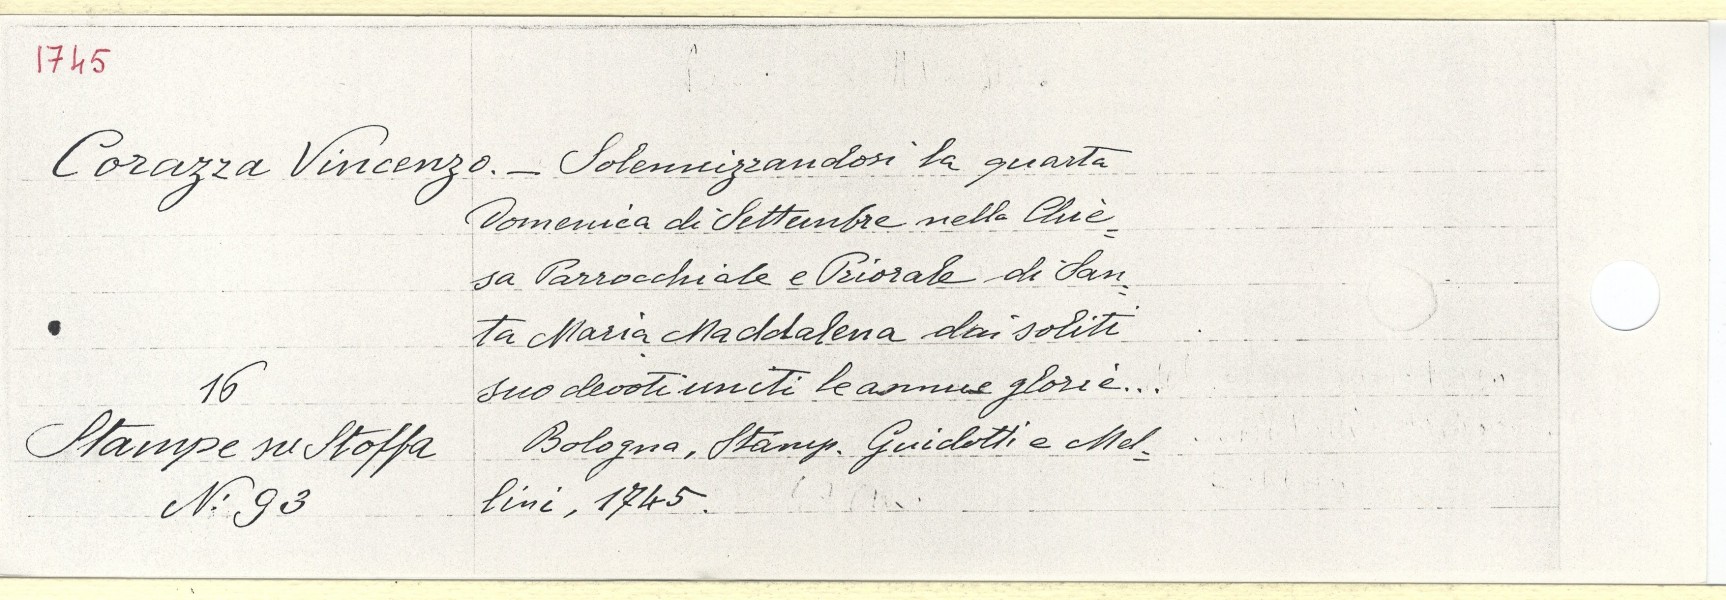 1745
Corazza Vincenzo. — Solennizzandosi la quarta
Domenica di Settembre nella Chie=
sa Parrocchiale e Priorale di San=
ta Maria Maddalena dai soliti
suo devoti uniti le annue glorie...
Bologna, Stamp. Guidotti e Mel=
lini, 1745.
16
Stampe su Stoffa
N: 93